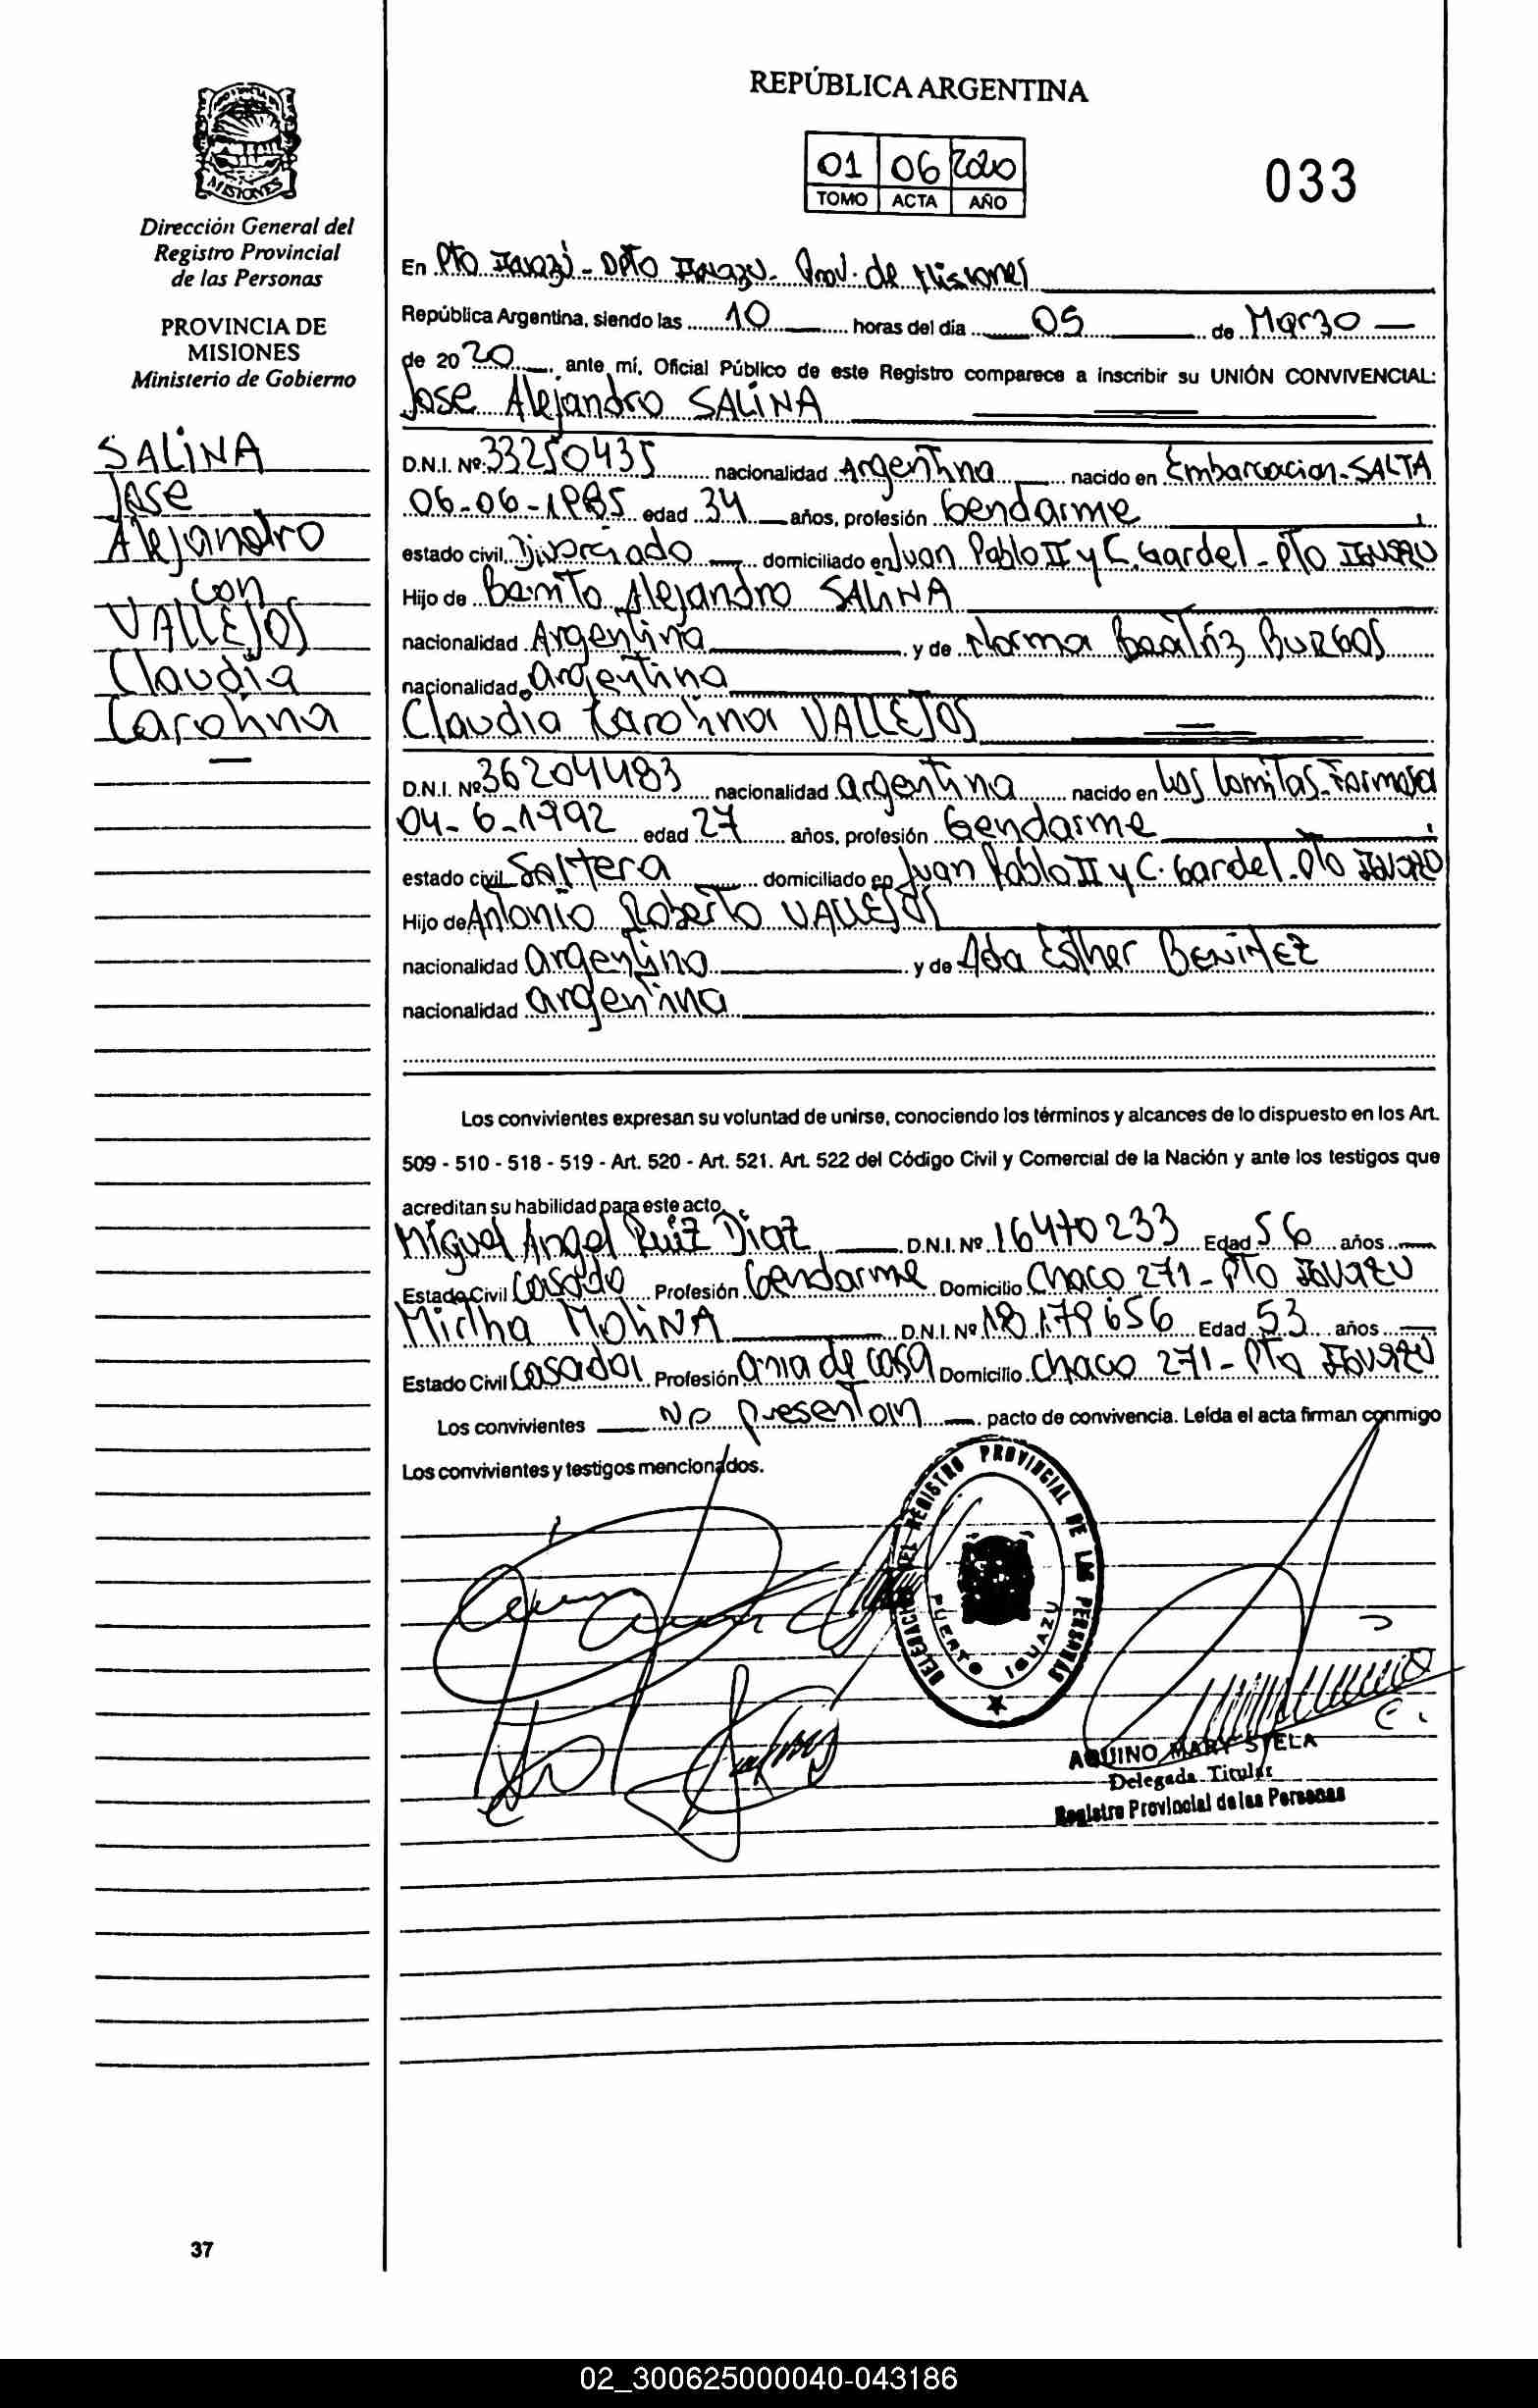 REPÚBLICA ARGENTINA
01 06 2020
TOMO ACTA AÑO
033
MISIONES
Dirección General del
Registro Provincial
de las Personas
PROVINCIA DE
MISIONES
Ministerio de Gobierno
SALINA
Jose
Alejandro
con
VALLEJOS
Claudia
Carolina
En Pto Iguazú - Dpto Iguazú - Prov. de Misiones
República Argentina, siendo las 10 horas del día 05 de Marzo
de 2020 ante mí, Oficial Público de este Registro comparece a inscribir su UNIÓN CONVIVENCIAL:
Jose Alejandro SALINA
D.N.I. Nº 33250435 nacionalidad Argentina nacido en Embarcacion - SALTA
06-06-1985 edad 34 años, profesión Gendarme
estado civil Divorciado domiciliado en Juan Pablo II y C. Gardel - Pto IGUAZU
Hijo de Benito Alejandro SALINA
nacionalidad Argentina y de Norma Beatriz BURGOS
nacionalidad argentina
Claudia Carolina VALLEJOS
D.N.I. Nº 36204483 nacionalidad argentina nacido en Las Lomitas - Formosa
04-6-1992 edad 27 años, profesión Gendarme
estado civil Soltera domiciliado en Juan Pablo II y C. Gardel. Pto Iguazu
Hijo de Antonio Roberto VALLEJOS
nacionalidad argentino y de Ada Esther BENITEZ
nacionalidad argentina
Los convivientes expresan su voluntad de unirse, conociendo los términos y alcances de lo dispuesto en los Art.
509 - 510 - 518 - 519 - Art. 520 - Art. 521. Art. 522 del Código Civil y Comercial de la Nación y ante los testigos que
acreditan su habilidad para este acto,
Miguel Angel Ruiz Diaz D.N.I. Nº 16470233 Edad 56 años
Estado Civil Casado Profesión Gendarme Domicilio Chaco 271 - Pto Iguazu
Mirtha MOLINA D.N.I. Nº 18.179656 Edad 53 años
Estado Civil Casada Profesión ama de casa Domicilio Chaco 271 - Pto Iguazu
Los convivientes No presentan pacto de convivencia. Leída el acta firman conmigo
Los convivientes y testigos mencionados.
DELEGACION DEL REGISTRO PROVINCIAL DE LAS PERSONAS
PUERTO IGUAZU
AQUINO MARY STELA
Delegada Titular
Registro Provincial de las Personas
37
02_300625000040-043186